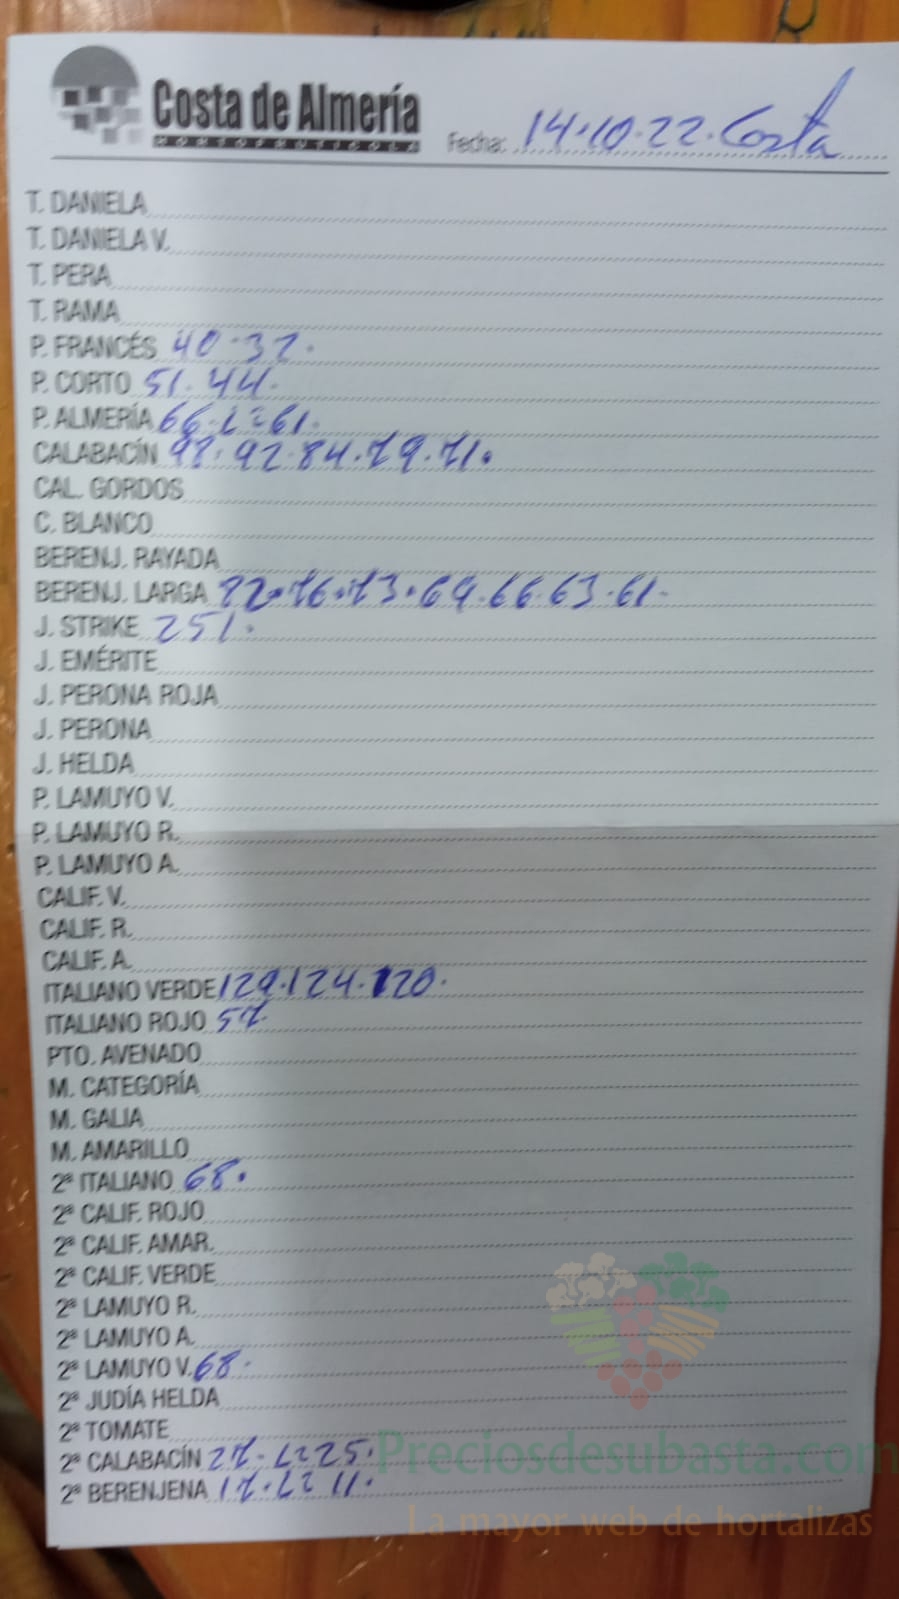 Costa de Almería
HORTOFRUTICOLA
Fecha: 14.10.22. Costa
T. DANIELA
T. DANIELA V.
T. PERA
T. RAMA
P. FRANCÉS 40.37.
P. CORTO 51.44.
P. ALMERÍA 66.L=61.
CALABACÍN 92.84.79.71.
CAL. GORDOS
C. BLANCO
BERENJ. RAYADA
BERENJ. LARGA 82.76.73.69.66.63.61.
J. STRIKE 251.
J. EMÉRITE
J. PERONA ROJA
J. PERONA
J. HELDA
P. LAMUYO V.
P. LAMUYO R.
P. LAMUYO A.
CALIF. V.
CALIF. R.
CALIF. A.
ITALIANO VERDE 129.124.120.
ITALIANO ROJO 57.
PTO. AVENADO
M. CATEGORÍA
M. GALIA
M. AMARILLO
2ª ITALIANO 68.
2ª CALIF. ROJO
2ª CALIF. AMAR.
2ª CALIF. VERDE
2ª LAMUYO R.
2ª LAMUYO A.
2ª LAMUYO V. 68.
2ª JUDÍA HELDA
2ª TOMATE
2ª CALABACÍN 27.L=25.
2ª BERENJENA 17.L=11.
Preciosdesubasta.com
La mayor web de hortalizas